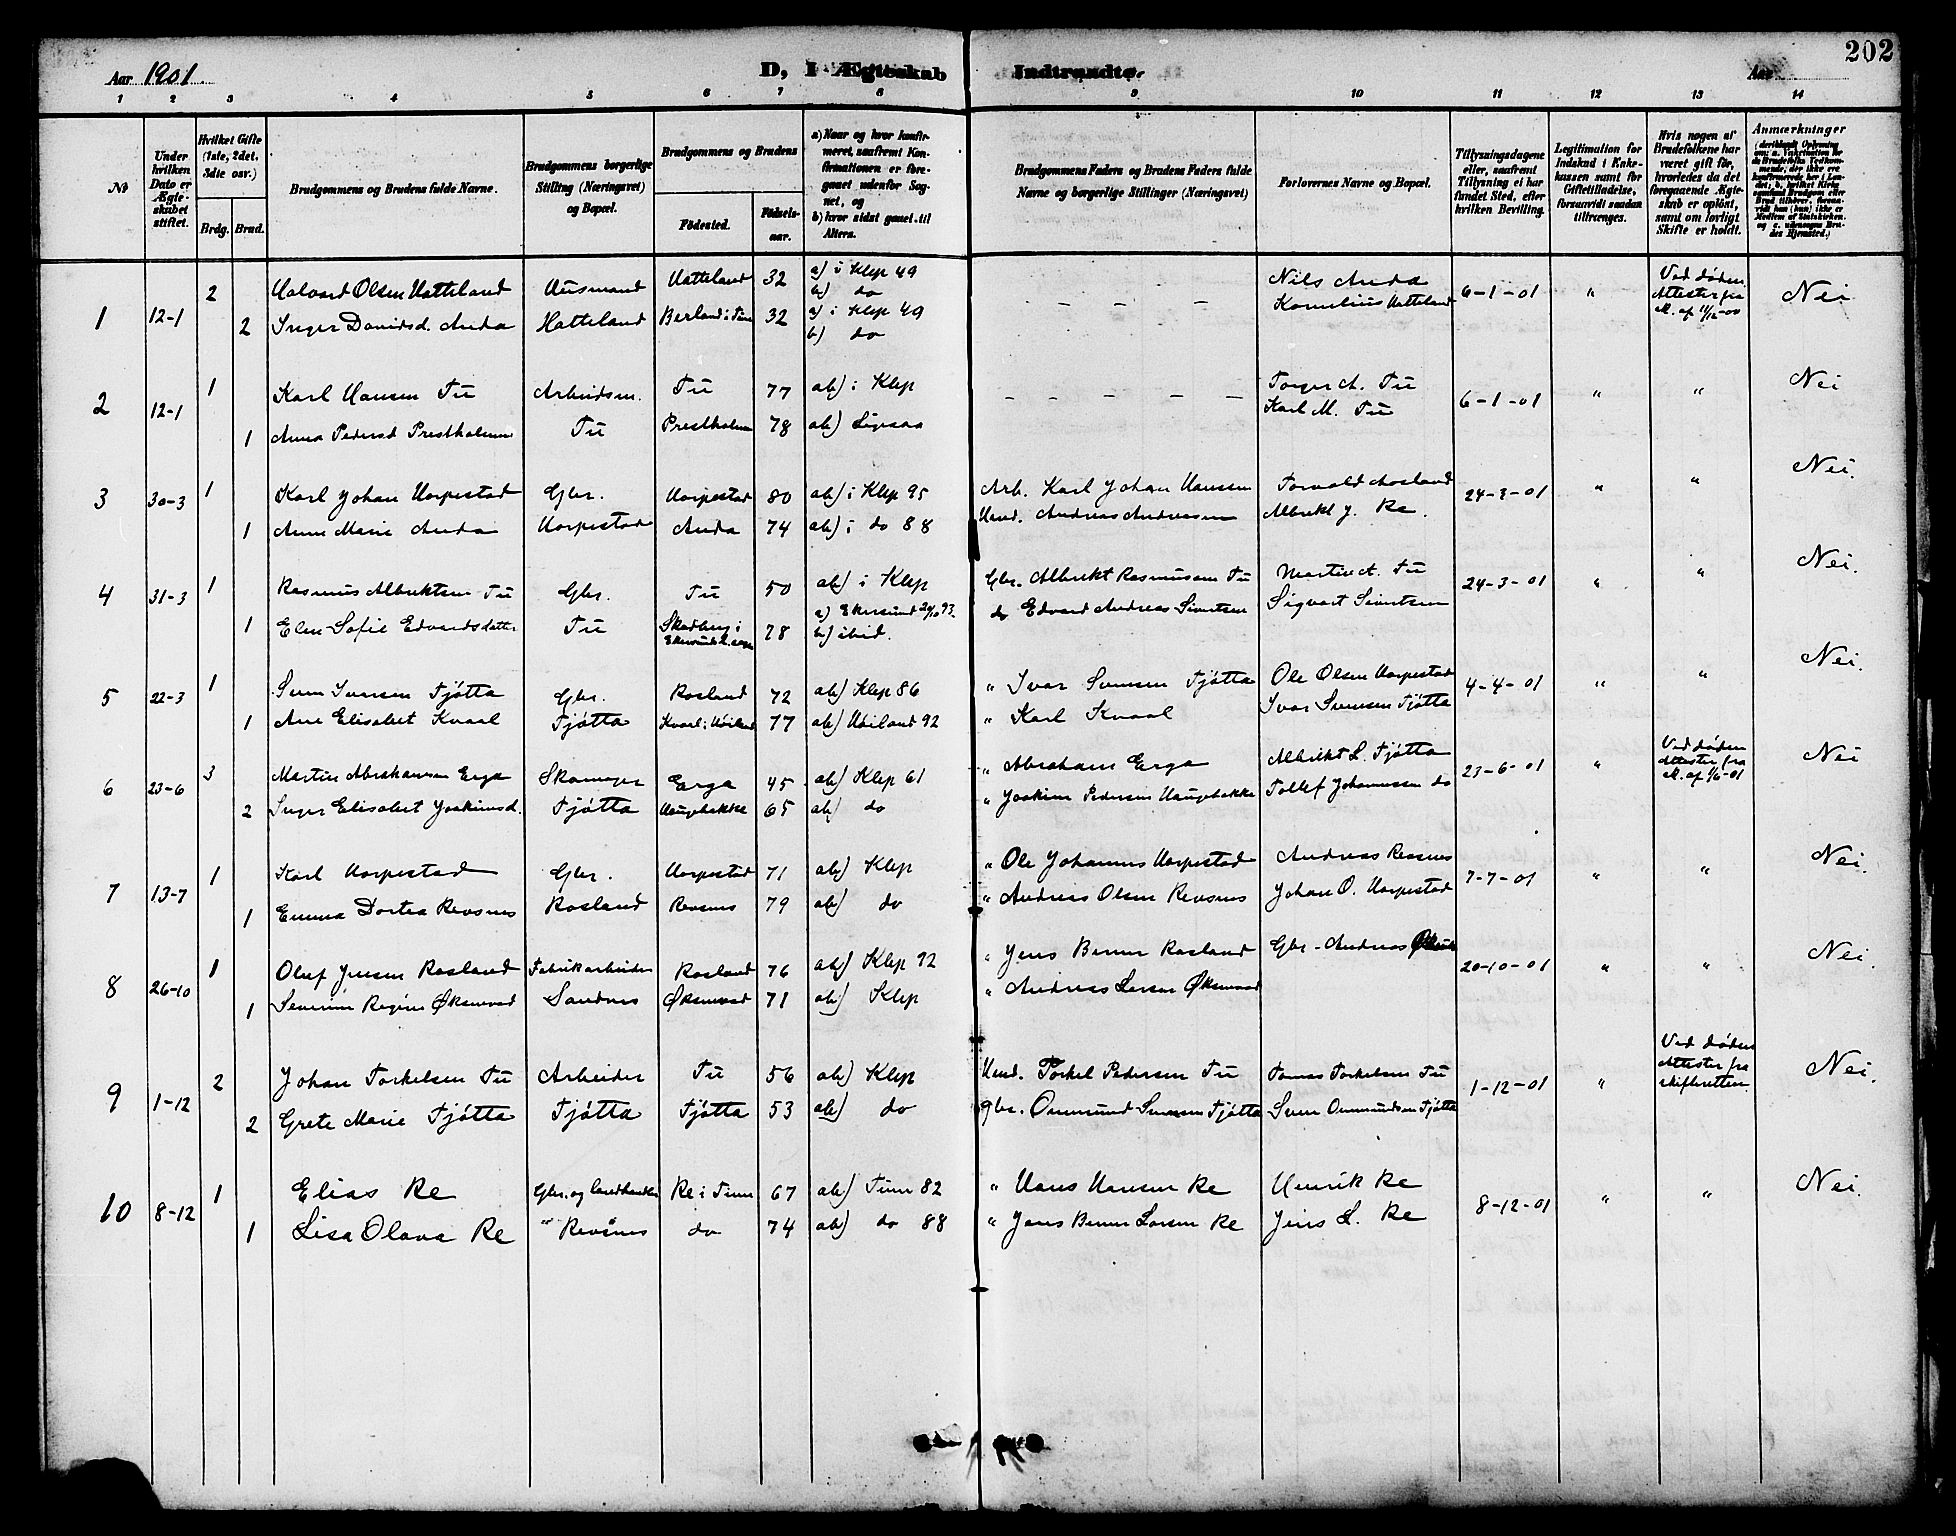 202
Aar 1901
D, I Ægteskab Indtraadte.
Aar
1 2 3 4 5 6 7 8 9 10 11 12 13 14
No
Under hvilken Dato er Ægteskabet stiftet.
Hvilket Gifte (1ste, 2det, 3die osv.)
Brdg. Brud.
Brudgommens og Brudens fulde Navne.
Brudgommens borgerlige Stilling (Næringsvei) og Bopæl.
Brudgommens og Brudens
Fødested.
Fødselsaar.
a) Naar og hvor konfirmeret, saafremt Konfirmationen er foregaaet udenfor Sognet, og
b) hvor sidst gaaet til Alters.
Brudgommens Faders og Brudens Faders fulde Navne og borgerlige Stillinger (Næringsvei)
Forlovernes Navne og Bopæl.
Tillysningsdagene eller, saafremt Tillysning ei har fundet Sted, efter hvilken Bevilling.
Legitimation for Indskud i Enkekassen samt for Giftetilladelse, forsaavidt saadan tiltrænges.
Hvis nogen af Brudefolkene har været gift før, hvorledes da det foregaaende Ægteskab er opløst, samt om lovligt Skifte er holdt.
Anmærkninger
1 12-1 2 Halvard Olsen Hatteland Husmand Hatteland 32 a) i Klep 49 b) do – – – – Nils Anda 6-1-01 " Ved døden Attester fra Nei
2 Inger Davidsd. Anda Hatteland Berland i Time 32 a) i Klep 49 b) do Kornelius Hatteland af 11/12-00
2 12-1 1 Karl Hansen Tu Arbeidsm. Tu 77 ab) i Klep – – – – – Torger A. Tu 6-1-01 " " Nei
1 Anna Pedersd Prestholmen Tu Prestholm 78 ab) Karl M. Tu
3 30-3 1 Karl Johan Horpestad Gbr. Horpestad 80 ab) i Klep 95 Arb. Karl Johan Hansen Torvald Aosland 24-3-01 " " Nei.
1 Anne Marie Anda Horpestad Anda 74 ab) i do 88 Hmd. Andreas Andreasen Albrikt J. Re.
4 31-3 1 Rasmus Albriktsen Tu Gbr. Tu 50 ab) i Klep Gbr. Albrikt Rasmussen Tu Martin A. Tu 24-3-01 " " Nei.
1 Elen Sofie Edvardsdatter Tu Skadberg i Ekersund 78 a) Ekersund 93. b) ibid. do Edvard Andreas Sivertsen Sigvart Sivertsen
5 22-3 1 Sven Ivarsen Tjøtta Gbr. Rosland 72 ab) Klep 86 " Ivar Svensen Tjøtta Ole Olsen Horpestad 4-4-01 " " Nei.
1 Ane Elisabet Kvaal Tjøtta Kvaal i Høiland 77 ab) Høiland 92 " Karl Kvaal Ivar Svensen Tjøtta
6 23-6 3 Martin Abrahamsen Erga Skomager Erga 45 ab) Klep 61 " Abraham Erga Albrikt L. Tjøtta 23-6-01 " Ved døden Attester fra Nei
2 Inger Elisabet Joakimsd. Tjøtta Haugebakke 65 ab) do " Joakim Pedersen Haugebakke Tollef Johannessen do af 1/6-01
7 13-7 1 Karl Horpestad Gbr. Horpestad 71 ab) Klep " Ole Johannes Horpestad Andreas Revsnes 7-7-01 " " Nei.
1 Emma Dortea Revsnes Rosland Revsnes 79 ab) do " Andreas Olsen Revsnes Johan O. Horpestad
8 26-10 1 Olaf Jensen Rosland Fabrikarbeider Rosland 76 ab) Klep 92 " Jens Berner Rosland Gbr. Andreas 20-10-01 " " Nei.
1 Severine Regine Øksnevad Sandnes Øksnevad 71 ab) Klep " Andreas Larsen Øksnevad
9 1-12 2 Johan Torkelsen Tu Arbeider Tu 56 ab) Klep Hmd. Torkel Pedersen Tu Tomas Torkelsen Tu 1-12-01 " Ved døden Attester fra skifteretten Nei.
2 Grete Marie Tjøtta Tjøtta Tjøtta 53 ab) do Gbr. Ommund Svensen Tjøtta Sven Ommundsen Tjøtta
10 8-12 1 Elias Re Gbr. og landhandler Re i Time 67 ab) Time 82 " Hans Hansen Re Henrik Re 8-12-01 " " Nei.
1 Lisa Olava Re " Revsnes do 74 ab) do 88 " Jens Berner Larsen Re Jens L. Re